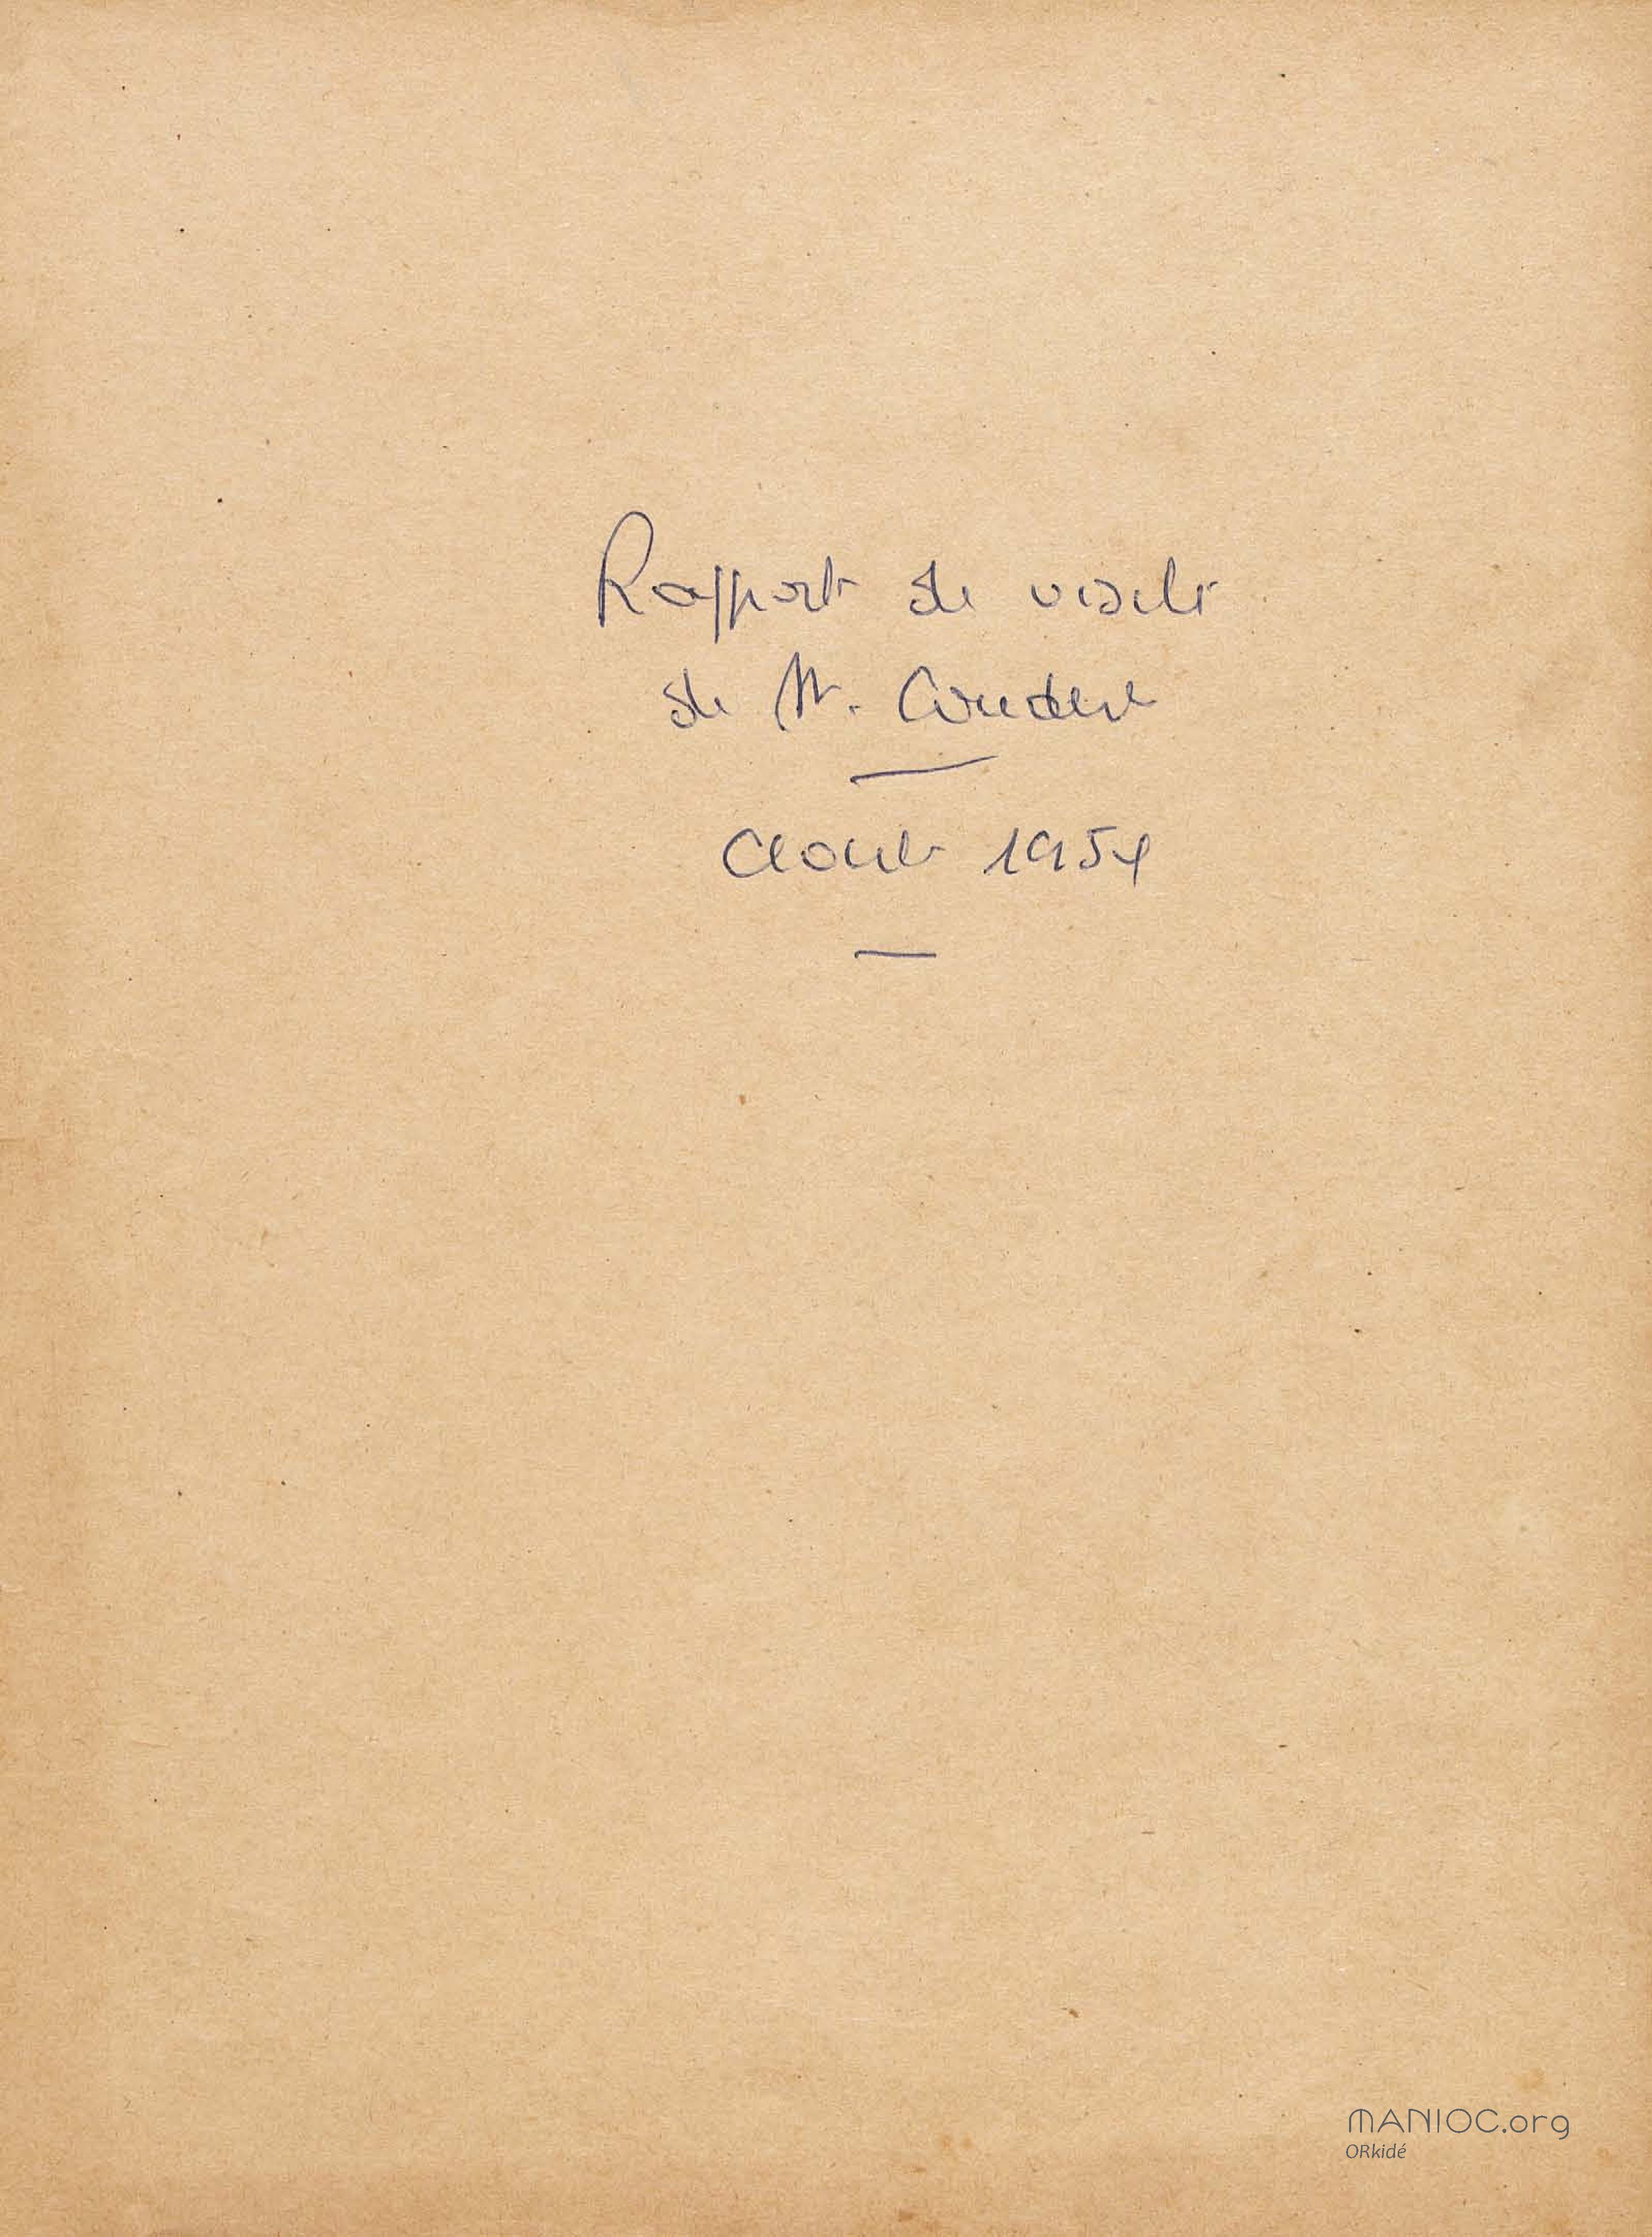 Rapport de visite
de M. Couderc
Aout 1954
MANIOC.org
ORkidé